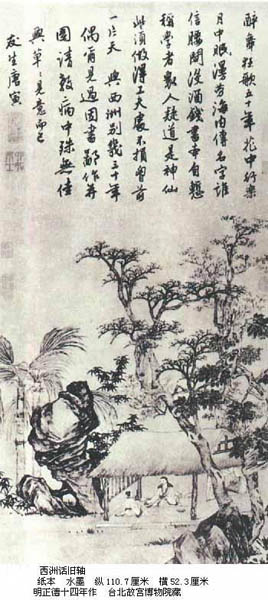 醉舞狂歌五十年花中行樂
月中眠漫勞海内傳名字誰
信腰間没酒錢書本自慙
稱學者衆人疑道是神仙
些須做得工夫處不損胸前
一片天 與西洲別幾三十年
偶爾見過因書鄙作并
圖請教病中殊無佳
興草〻見意而已
友生唐寅
西洲话旧轴
纸本 水墨 纵110.7厘米 横52.3厘米
明正德十四年作 台北故宫博物院藏